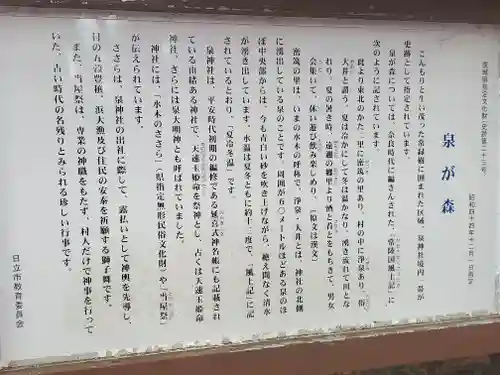 茨城県指定文化財(史跡第二十三号)
昭和四十四年十二月一日指定
泉が森
こんもりと生い茂った常緑樹に囲まれた区域、泉神社境内一帯が
史跡として指定されています。
泉が森については、奈良時代に編さんされた「常陸国風土記」に
次のように記されています。
此より東北のかた二里に密筑の里あり、村の中に浄泉あり、俗
大井と謂う、夏は冷かにして冬は温かなり、湧き流れて川とな
れり、夏の暑き時、遠邇の郷里より酒と肴とをもちきて、男女
会集いて、休い遊び飲み楽しめり。(原文は漢文)
密筑の里は、いまの水木の呼称で、浄泉・大井とは、神社の北側
に湧出している泉のことです。周囲が六〇メートルほどある泉のほ
ぼ中央部からは、今も青白い砂を吹き上げながら、絶え間なく清水
が湧き出しています。水温は夏冬ともに約十三度で、「風土記」に記
されているとおり、「夏冷冬温」です。
泉神社は、平安時代初期の編修である延喜式神名帳にも記載され
ている由緒ある神社で、天速玉姫命を祭神とし、古くは天速玉姫命
神社、さらには泉大明神とも呼ばれていました。
神社には、「水木のささら」(県指定無形民俗文化財)や「当屋祭」
が伝えられています。
ささらは、泉神社の出社に際して、露払いとして神輿を先導し、
村の五穀豊穣、浜大漁及び住民の安泰を祈願する獅子舞です。
また、当屋祭は、専業の神職をもたず、村人だけで神事を行って
いた、古い時代の名残りとみられる珍しい行事です。
日立市教育委員会